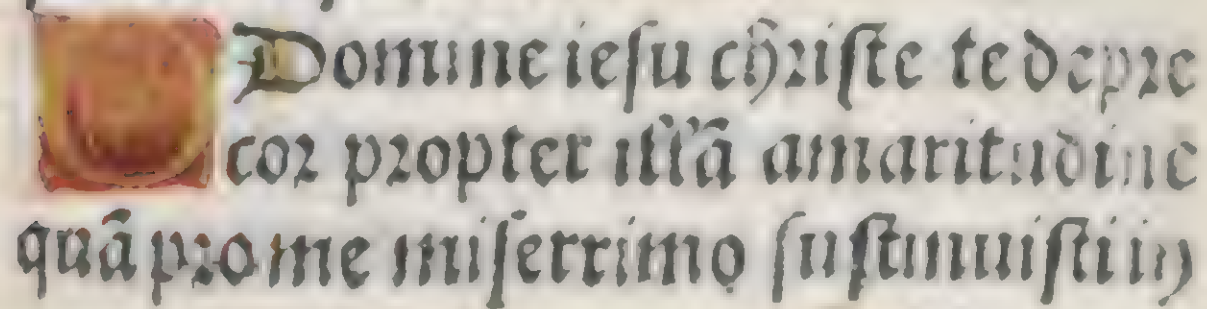 O Domine iesu chr̄iste te depre
cor propter illā amaritudinē
quā pro me miserrimo sustinuisti in